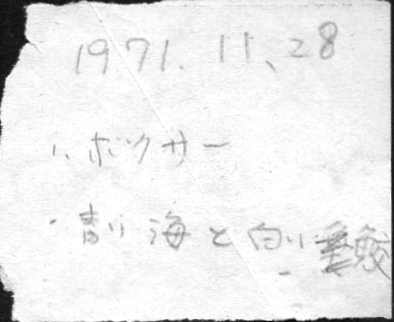 1971. 11、28
1、ボクサー
・青い海と白い鮫